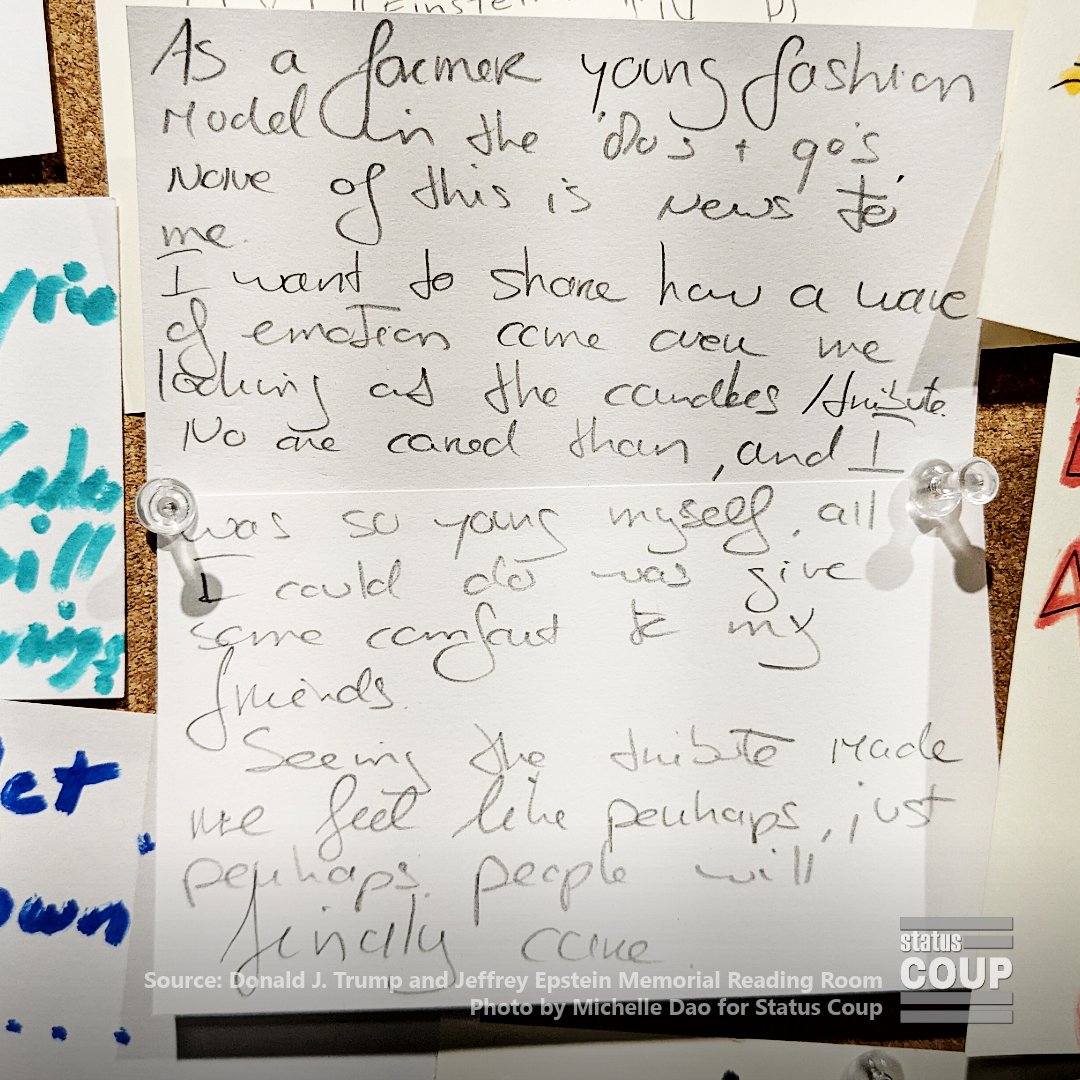 Einstein
As a former young fashion
Model in the '80s + 90's
None of this is News to
me.
I want to share how a wave
of emotion came over me
looking at the candles / tribute.
No one cared then, and I
was so young myself, all
I could do was give
some comfort to my
friends.
Seeing the tribute Made
me feel like perhaps, just
perhaps people will
finally care.
own
Source: Donald J. Trump and Jeffrey Epstein Memorial Reading Room
Photo by Michelle Dao for Status Coup
status
COUP